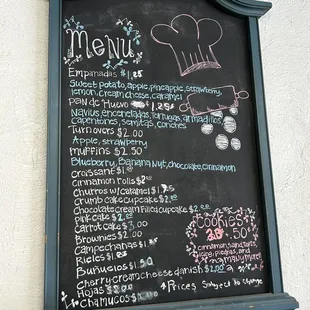 Menu
Empanadas $1.25
Sweet potato, apple, pineapple, strawberry
lemon, cream cheese, caramel
Pan de Huevo $1.25
Novius, encenelados, tortugas, armadillos
Capentones, semitas, conches
Turnovers $2.00
Apple, strawberry
muffins $2.50
Blueberry, Banana Nut, chocolate, cinnamon
croissant $1
cinnamon rolls $2
Churros w/caramel $1.75
crumb cake cupcake $2
Chocolate cream filled cupcake $2
pink cake $2
Carrot cake $3.00
Brownies $2.00
Campechanas $1.25
Rieles $1.25
Buñuelos $1.50
Cherry cream cheese danish $2.00
Hojas $2.00
Chamucos
Cookies
.50¢
cinnamon, sandtarts,
piedras, and
* Prices Subject to change